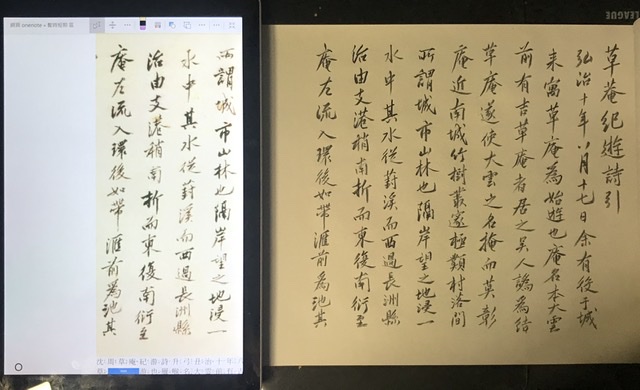 LEAGUE
草菴紀遊詩引
弘治十年八月十七日余有役于城
來寓草庵為始遊也庵名本大雲
前有吉草庵者居之吳人譌為結
草庵遂使大雲之名掩而莫彰
庵近南城竹樹叢邃極類村落間
所謂城市山林也隔岸望之地浸一
水中其水從葑溪而西過長洲縣
治由支港稍南折而東復南衍至
庵左流入環後如帶滙前為池其
onenote
所謂城市山林也隔岸望之地浸一
水中其水從葑溪而西過長洲縣
治由支港稍南折而東復南衍至
庵左流入環後如帶滙前為池其
沈周草庵紀遊詩并引弘治十年